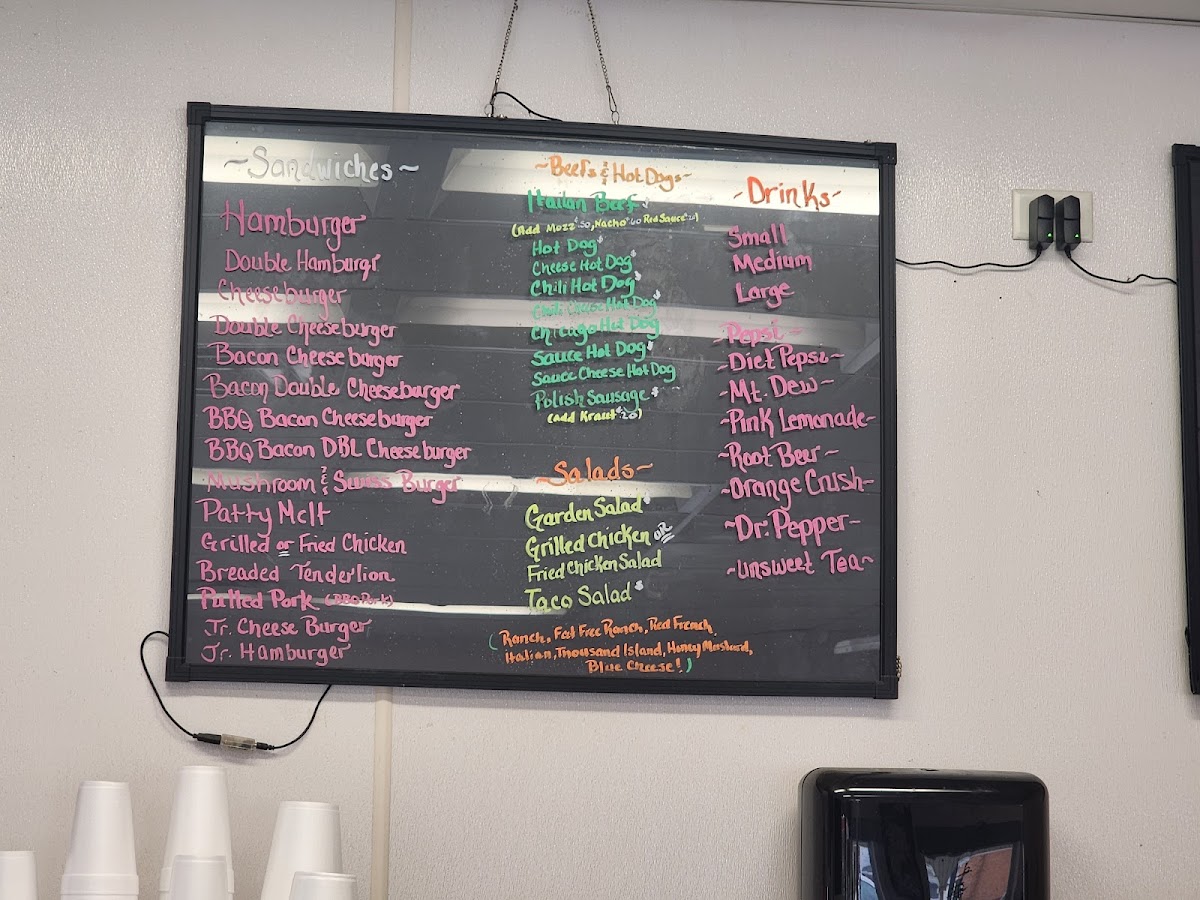 ~Sandwiches~
Hamburger
Double Hamburgr
Cheeseburger
Double Cheeseburger
Bacon Cheeseburger
Bacon Double Cheeseburger
BBQ Bacon Cheeseburger
BBQ Bacon DBL Cheeseburger
Mushroom & Swiss Burger
Patty Melt
Grilled or Fried Chicken
Breaded Tenderlion
Pulled Pork (BBQ Pork)
Jr. Cheese Burger
Jr. Hamburger
~Beefs & Hot Dogs~
Itailan Beef
(Add Mozz .50, Nacho .60 Red Sauce .20)
Hot Dog
Cheese Hot Dog
Chili Hot Dog
Chili Cheese Hot Dog
Chicago Hot Dog
Sauce Hot Dog
Sauce Cheese Hot Dog
Polish Sausage
(add Kraut .20)
~Salads~
Garden Salad
Grilled Chicken OR
Fried Chicken Salad
Taco Salad
(Ranch, Fat Free Ranch, Red French,
Italian, Thousand Island, Honey Mustard,
Blue Cheese!)
~Drinks~
Small
Medium
Large
~Pepsi~
~Diet Pepsi~
~Mt. Dew~
~Pink Lemonade~
~Root Beer~
~Orange Crush~
~Dr. Pepper~
~unsweet Tea~